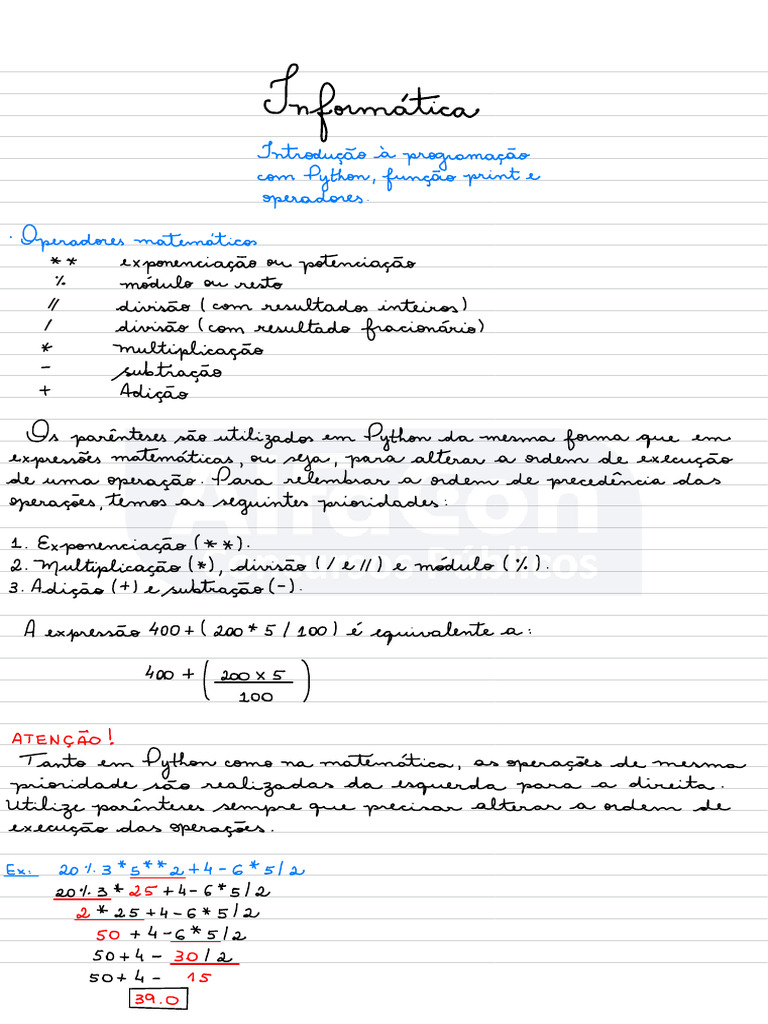 Informática
Introdução à programação
com Python, função print e
operadores.
· Operadores matemáticos
** exponenciação ou potenciação
% módulo ou resto
// divisão (com resultados inteiros)
/ divisão (com resultado fracionário)
* multiplicação
- subtração
+ Adição
Os parênteses são utilizados em Python da mesma forma que em
expressões matemáticas, ou seja, para alterar a ordem de execução
de uma operação. Para relembrar a ordem de precedência das
operações, temos as seguintes prioridades:
AlfaCon
Concursos Públicos
1. Exponenciação (**).
2. Multiplicação (*), divisão (/ e //) e módulo (%).
3. Adição (+) e subtração (-).
A expressão 400+(200*5/100) é equivalente a:
400 + (200 x 5
100)
ATENÇÃO!
Tanto em Python como na matemática, as operações de mesma
prioridade são realizadas da esquerda para a direita.
Utilize parênteses sempre que precisar alterar a ordem de
execução das operações.
Ex: 20%3*5**2+4-6*5/2
20%3*25+4-6*5/2
2*25+4-6*5/2
50+4-6*5/2
50+4-30/2
50+4-15
39.0